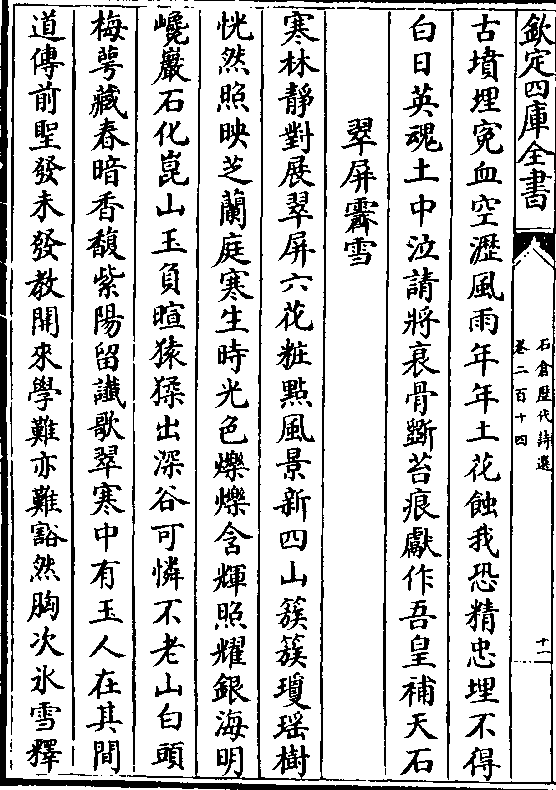 欽定四庫全書
石倉歴代詩選
卷二百十四
十一
古墳埋寃血空瀝風雨年年土花蝕我恐精忠埋不得
白日英魂土中泣請將哀骨斲苔痕獻作吾皇補天石
翠屏霽雪
寒林靜對展翠屏六花粧點風景新四山簇簇瓊瑶樹
恍然照映芝蘭庭寒生時光色爍爍含輝照耀銀海明
巉巖石化崑山玉負暄猿猱出深谷可憐不老山白頭
梅萼藏春暗香馥紫陽留讖歌翠寒中有玉人在其間
道傳前聖發未發教開來學難亦難豁然胸次氷雪釋